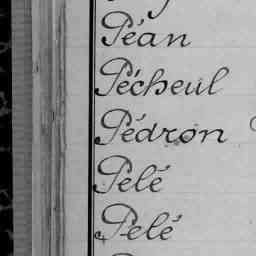 Péan
Pécheul
Pédron
Pelé
Pelé